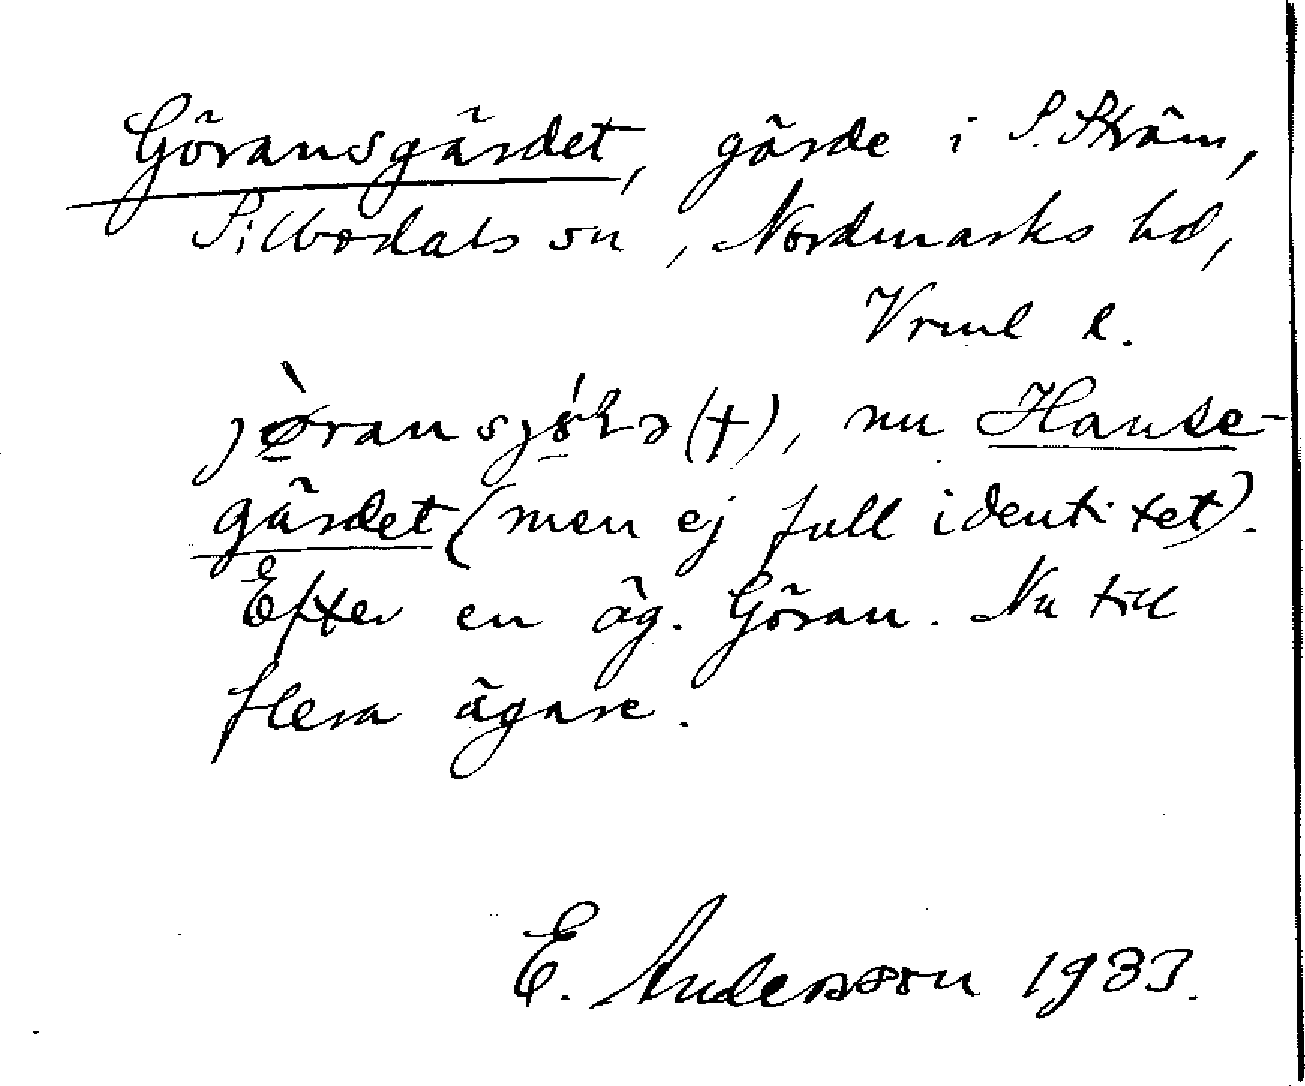 Göransgärdet, gärde i S. Skräm,
Silbodals sn, Nordmarks hd,
Vrml l.
(†), nu Hanse-
gärdet (men ej full identitet).
Efter en äg. Göran. Nu till
flera ägare.
E. Andersson 1933.